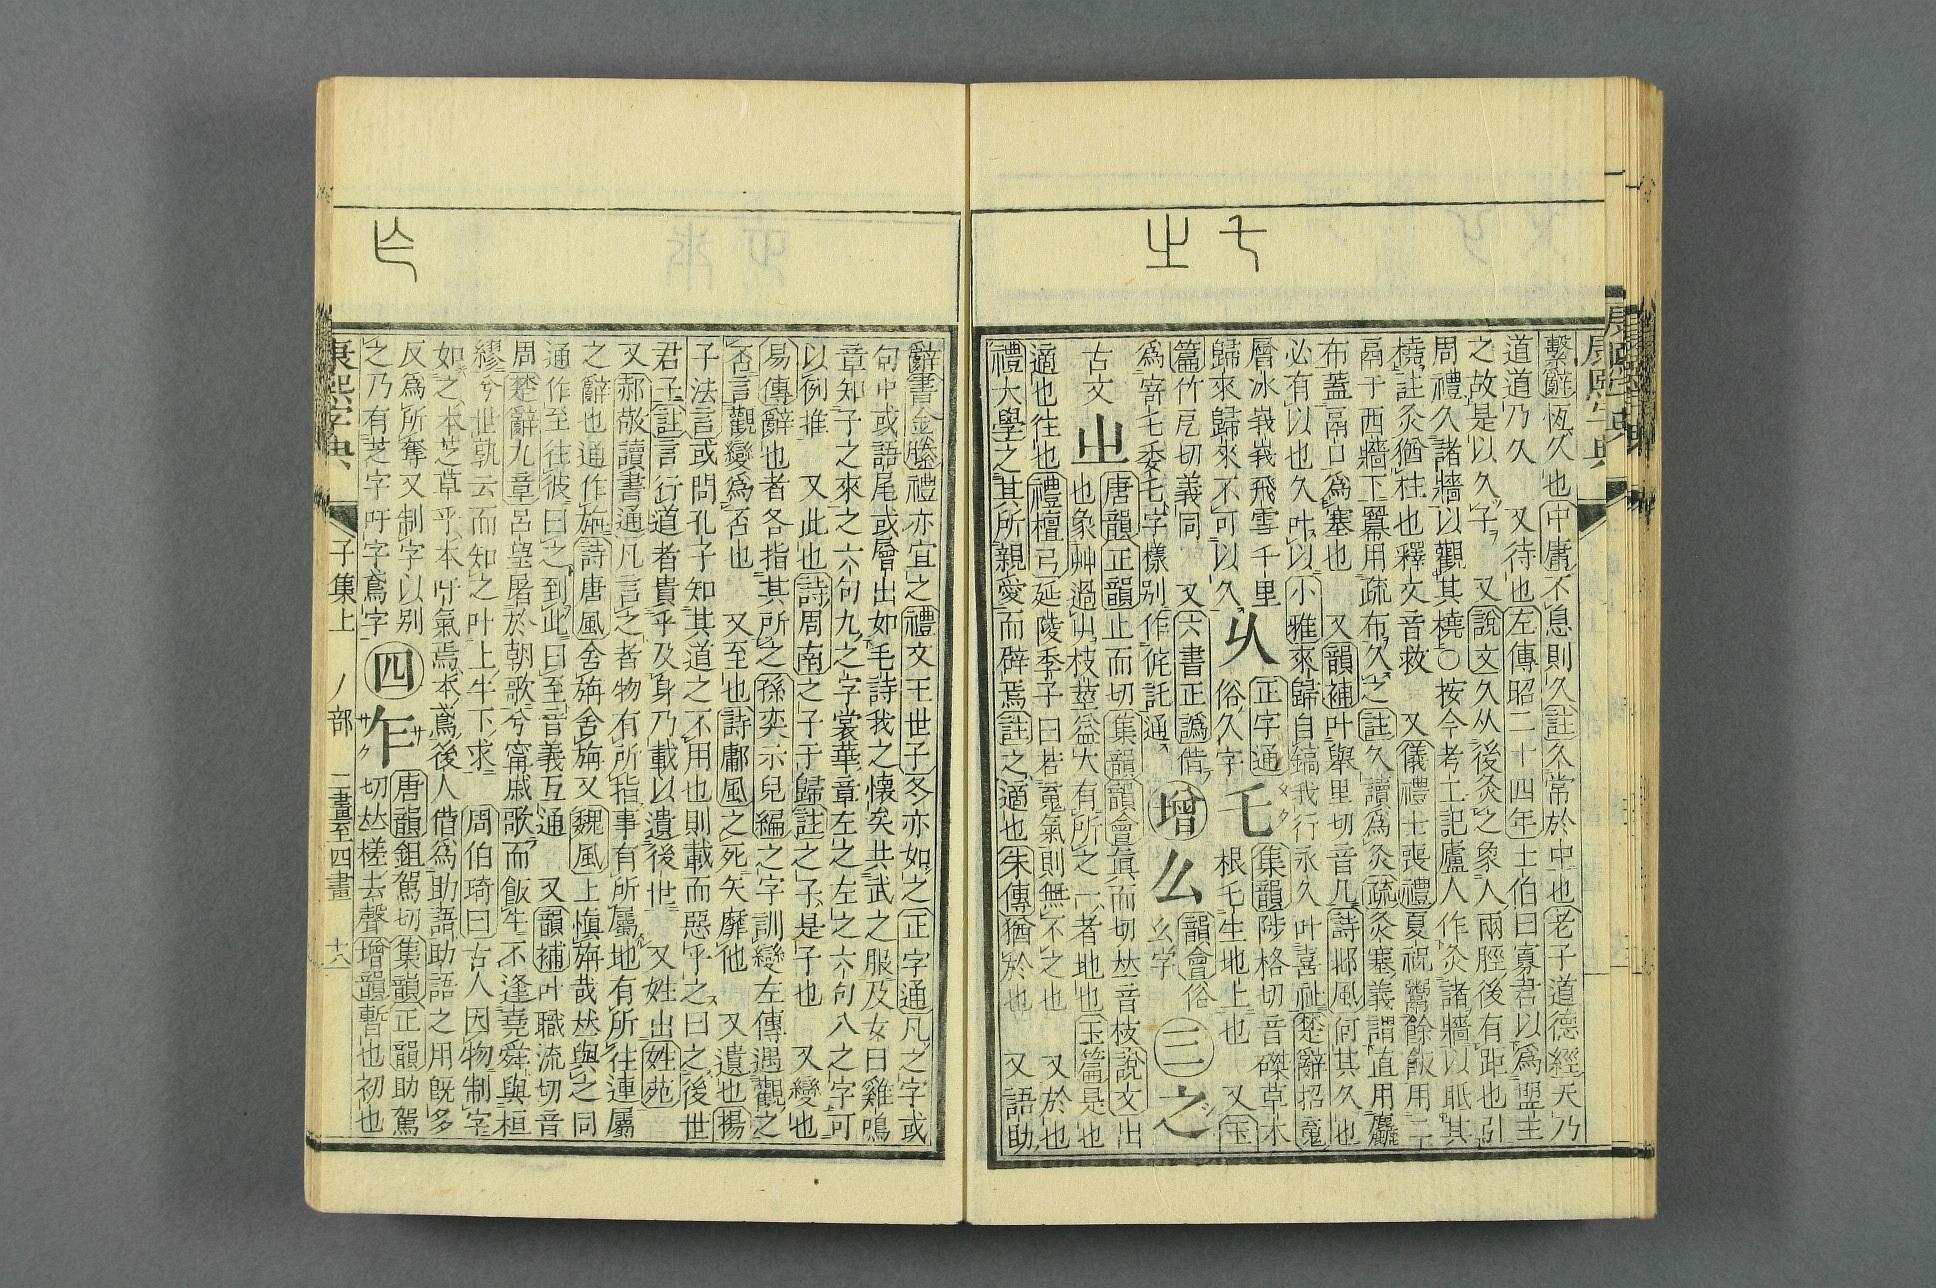 繫辭恆久也中庸不息則久註久常於中也老子道德經天乃
道道乃久 又待也左傳昭二十四年士伯曰寡君以爲盟主
之故是以久子 又說文久从後灸之象人兩脛後有距也引
周禮久諸牆以觀其橈○按今考工記廬人作灸諸牆以眡其
橈註灸猶柱也釋文音救 又儀禮士喪禮夏祝鬻餘飯用二
鬲于西牆下冪用疏布久之註久讀爲灸疏灸塞義謂直用麤
布蓋鬲口爲塞也 又韻補叶舉里切音几詩邶風何其久也
必有以也久叶以小雅來歸自鎬我行永久叶喜祉楚辭招魂
層冰峩峩飛雪千里 乆 正字通俗久字
歸來歸來不可以久 乇 集韻陟格切音磔草木根乇生地上也 又玉
篇竹戹切義同 又六書正譌借
爲寄乇委乇字樣別作侂託通 增 么 韻會俗幺字 三 之
古文 㞢 唐韻正韻止而切集韻韻會眞而切𠀤音枝說文出
也象艸過屮枝莖益大有所之一者地也玉篇是也
適也往也禮檀弓延陵季子曰若魂氣則無不之也 又於也
禮大學之其所親愛而辟焉註之適也朱傳猶於也 又語助
辭書金縢禮亦宜之禮文王世子冬亦如之正字通凡之字或
句中或語尾或層出如毛詩我之懷矣共武之服及女曰雞鳴
章知子之來之六句九之字裳華章左之左之六句八之字可
以例推 又此也詩周南之子于歸註之子是子也 又變也
易傳辭也者各指其所之孫奕示兒編之字訓變左傳遇觀之
否言觀變爲否也 又至也詩鄘風之死矢靡他 又遺也揚
子法言或問孔子知其道之不用也則載而惡乎之曰之後世
君子註言行道者貴乎及身乃載以遺後世 又姓出姓苑
又郝敬讀書通凡言之者物有所指事有所屬地有所往連屬
之辭也通作旃詩唐風舍旃舍旃又魏風上愼旃哉𠀤與之同
通作至往彼曰之到此曰至音義互通 又韻補叶職流切音
周楚辭九章呂望屠於朝歌兮甯戚歌而飯牛不逢堯舜與桓
繆兮世孰云而知之叶上牛下求 周伯琦曰古人因物制字
如之本芝草乎本吁氣焉本鳶後人借爲助語助語之用旣多
反爲所奪又制字以別
之乃有芝字吁字鳶字 四 乍 サ サク 唐韻鉏駕切集韻正韻助駕
切𠀤槎去聲增韻暫也初也
康熙字典 子集上 丿部 二畫至四畫 十八
康熙字典